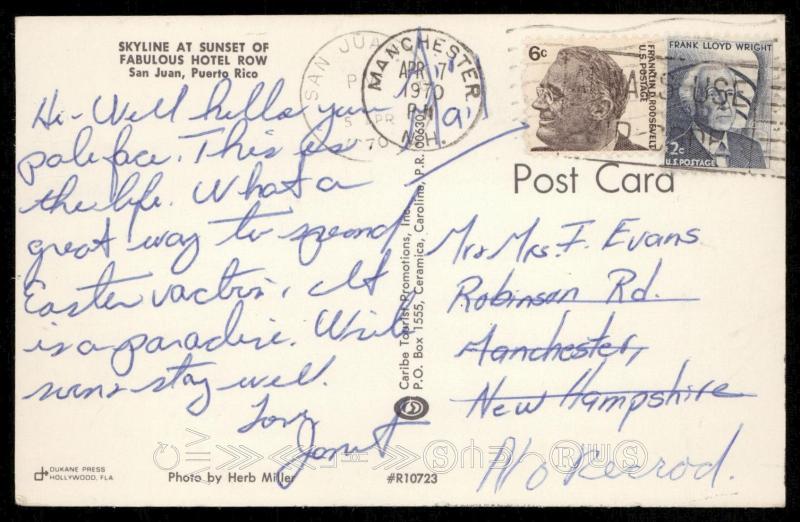 SKYLINE AT SUNSET OF
FABULOUS HOTEL ROW
San Juan, Puerto Rico
Hi - Well hello you
paleface. This is
the life. What a
great way to spend
Easter vaction. It
is a paradise. Write
soon & stay well.
Love,
Janet
DUKANE PRESS
HOLLYWOOD, FLA
Photo by Herb Miller
#R10723
Caribe Tourist Promotions, Inc.
P.O. Box 1555, Ceramica, Carolina, P.R. 00630
SAN JUA
MANCHESTER
APR 7
1970
PM
N.H.
6c
FRANKLIN D. ROOSEVELT
U.S. POSTAGE
FRANK LLOYD WRIGHT
2c
U.S. POSTAGE
Post Card
Mr & Mrs. F. Evans
Robinson Rd.
Manchester,
New Hampshire
No Record.